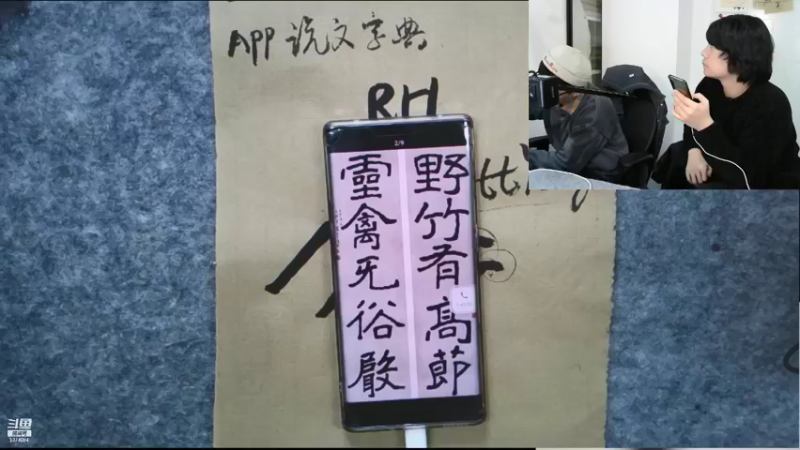 APP 说文字典
RH
2/9
野竹有高節
靈禽无俗
斗鱼